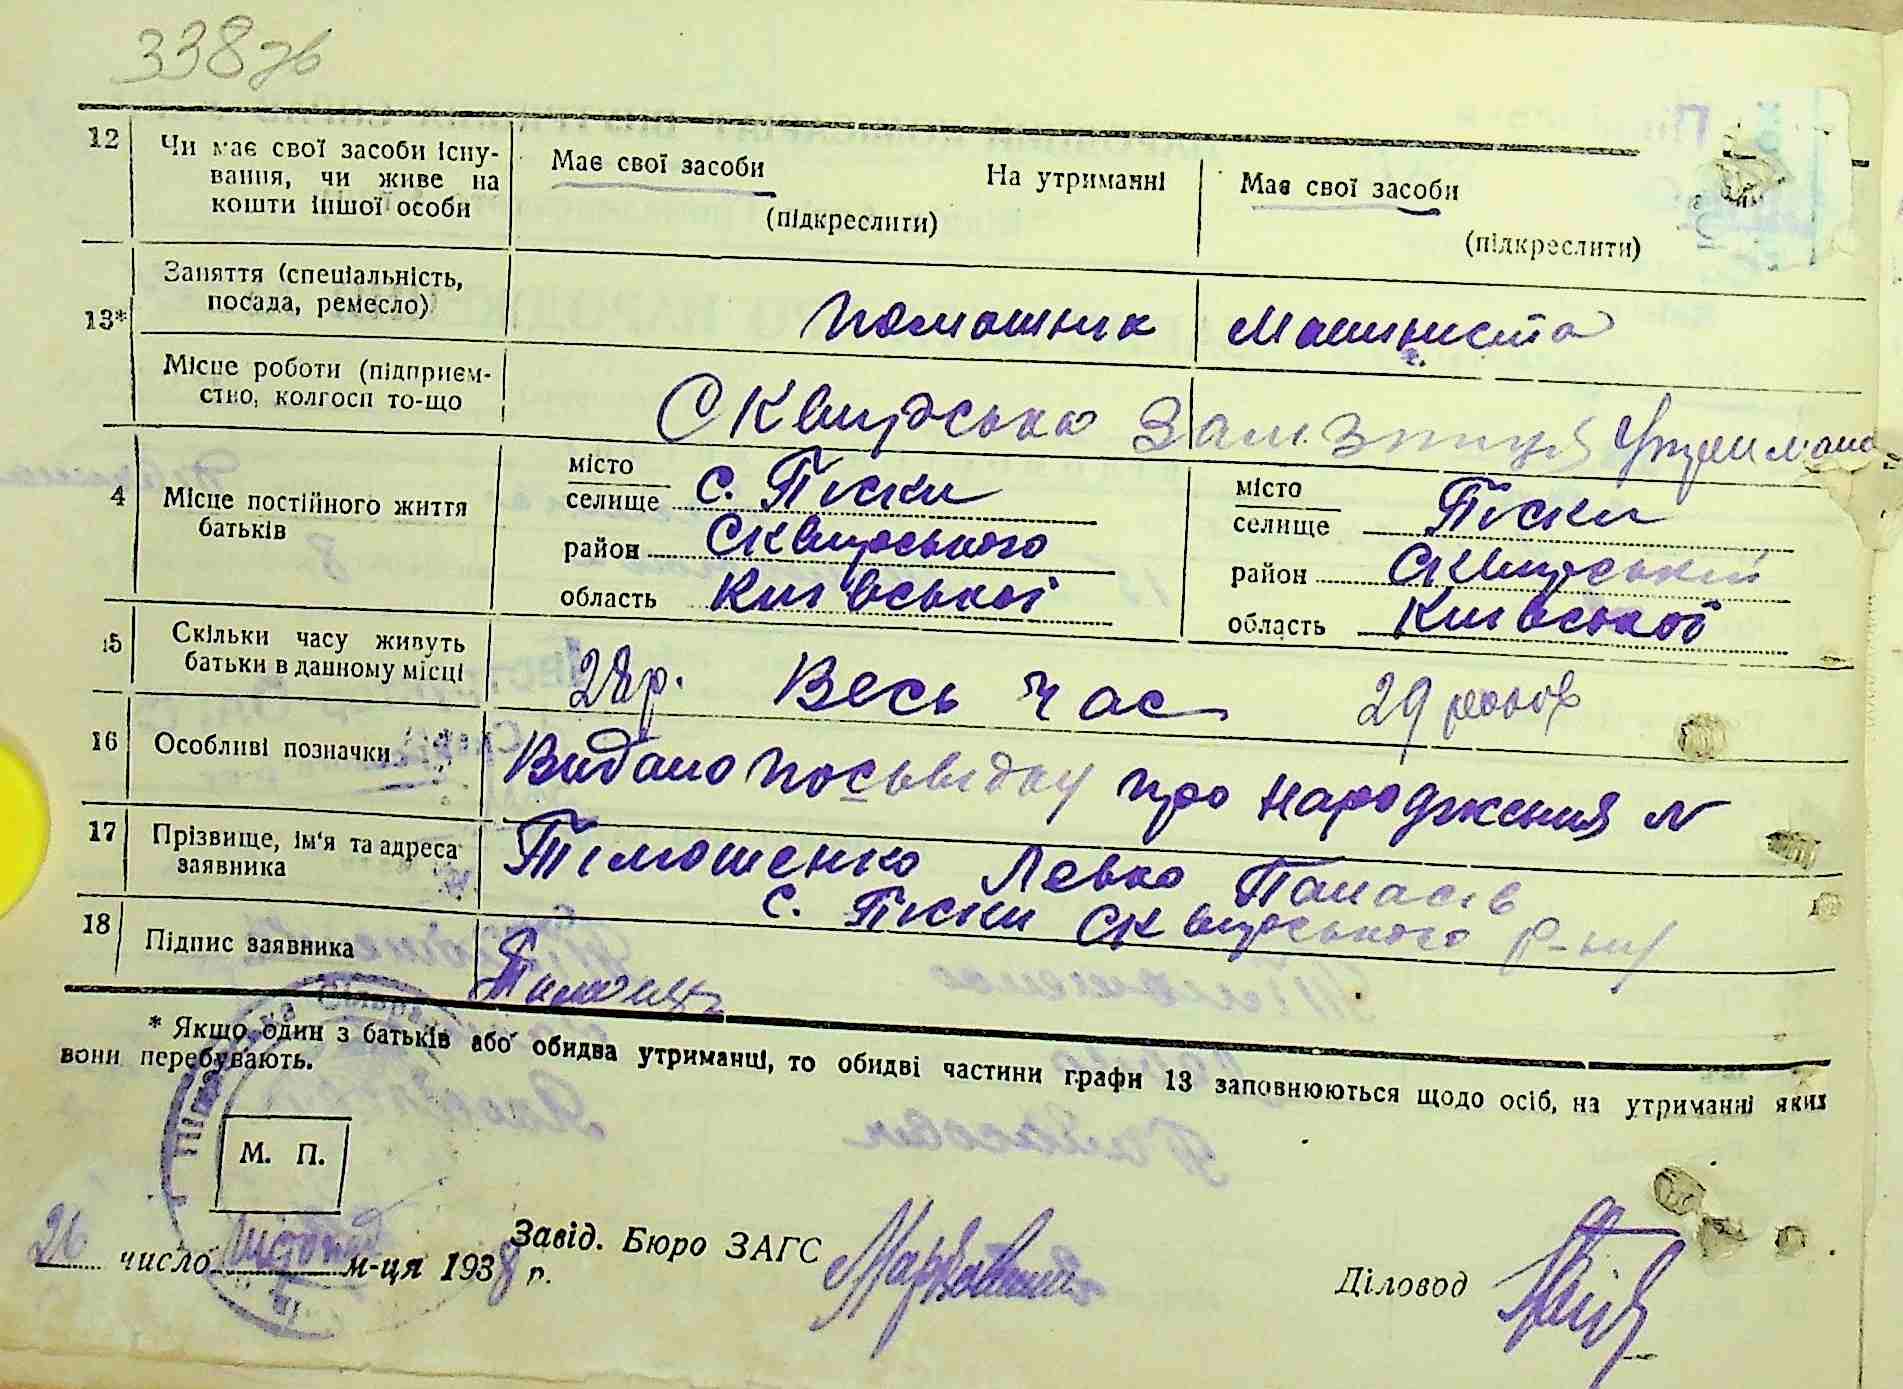 338зв
12 Чи має свої засоби існу- Має свої засоби На утриманні Має свої засоби
вання, чи живе на (підкреслити) (підкреслити)
кошти іншої особи
13* Заняття (спеціальність, помошник Машиниста
посада, ремесло)
Місце роботи (підприєм- Сквирсько Залізниця
ство, колгосп то-що
4 Місце постійного життя батьків
місто
селище с. Піски
район Сквирського
область Київської
місто
селище Піски
район Сквирський
область Київської
15 Скільки часу живуть 28 р. Весь час 29 років
батьки в данному місці
16 Особливі позначки Видано посьвідку про народження N
17 Прізвище, ім'я та адреса Тімошенко Левко Панасів
заявника с. Піски Сквирського р-ну
18 Підпис заявника
* Якщо один з батьків або обидва утриманці, то обидві частини графи 13 заповнюються щодо осіб, на утриманні яких
вони перебувають.
М. П.
26 число листопад м-ця 1938 р.
Завід. Бюро ЗАГС
Діловод